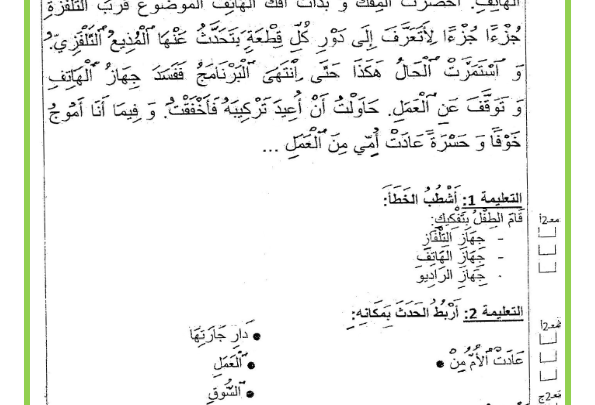 الْهَاتِفِ. أَحْضَرْتُ الْمِفَكَّ وَ بَدَأْتُ أَفُكُّ الْهَاتِفَ الْمَوْضُوعَ قُرْبَ التَّلْفَزَةِ
جُزْءًا جُزْءًا لِأَتَعَرَّفَ إِلَى دَوْرِ كُلِّ قِطْعَةٍ يَتَحَدَّثُ عَنْهَا الْمُذِيعُ التَّلْفَزِيُّ.
وَ اسْتَمَرَّتْ الْحَالُ هَكَذَا حَتَّى اِنْتَهَى الْبَرْنَامَجُ فَفَسَدَ جِهَازُ الْهَاتِفِ
وَ تَوَقَّفَ عَنِ الْعَمَلِ. حَاوَلْتُ أَنْ أُعِيدَ تَرْكِيبَهُ فَأَخْفَقْتُ. وَ فِيمَا أَنَا أَمُوجُ
خَوْفًا وَ حَسْرَةً عَادَتْ أُمِّي مِنَ الْعَمَلِ ...
التعليمة 1: أَشْطُبُ الخَطَأَ:
قَامَ الطِفْلُ بِتَفْكِيكِ:
مع2أ
- جِهَازِ التِلْفَازِ
- جِهَازِ الهَاتِفِ
- جِهَازِ الرَادِيُو
التعليمة 2: أَرْبُطُ الحَدَثَ بِمَكَانِهِ:
مع2أ
• دَارِ جَارَتِهَا
عَادَتْ الْأُمُّ مِنْ •
• الْعَمَلِ
• السُّوقِ
مع2ج